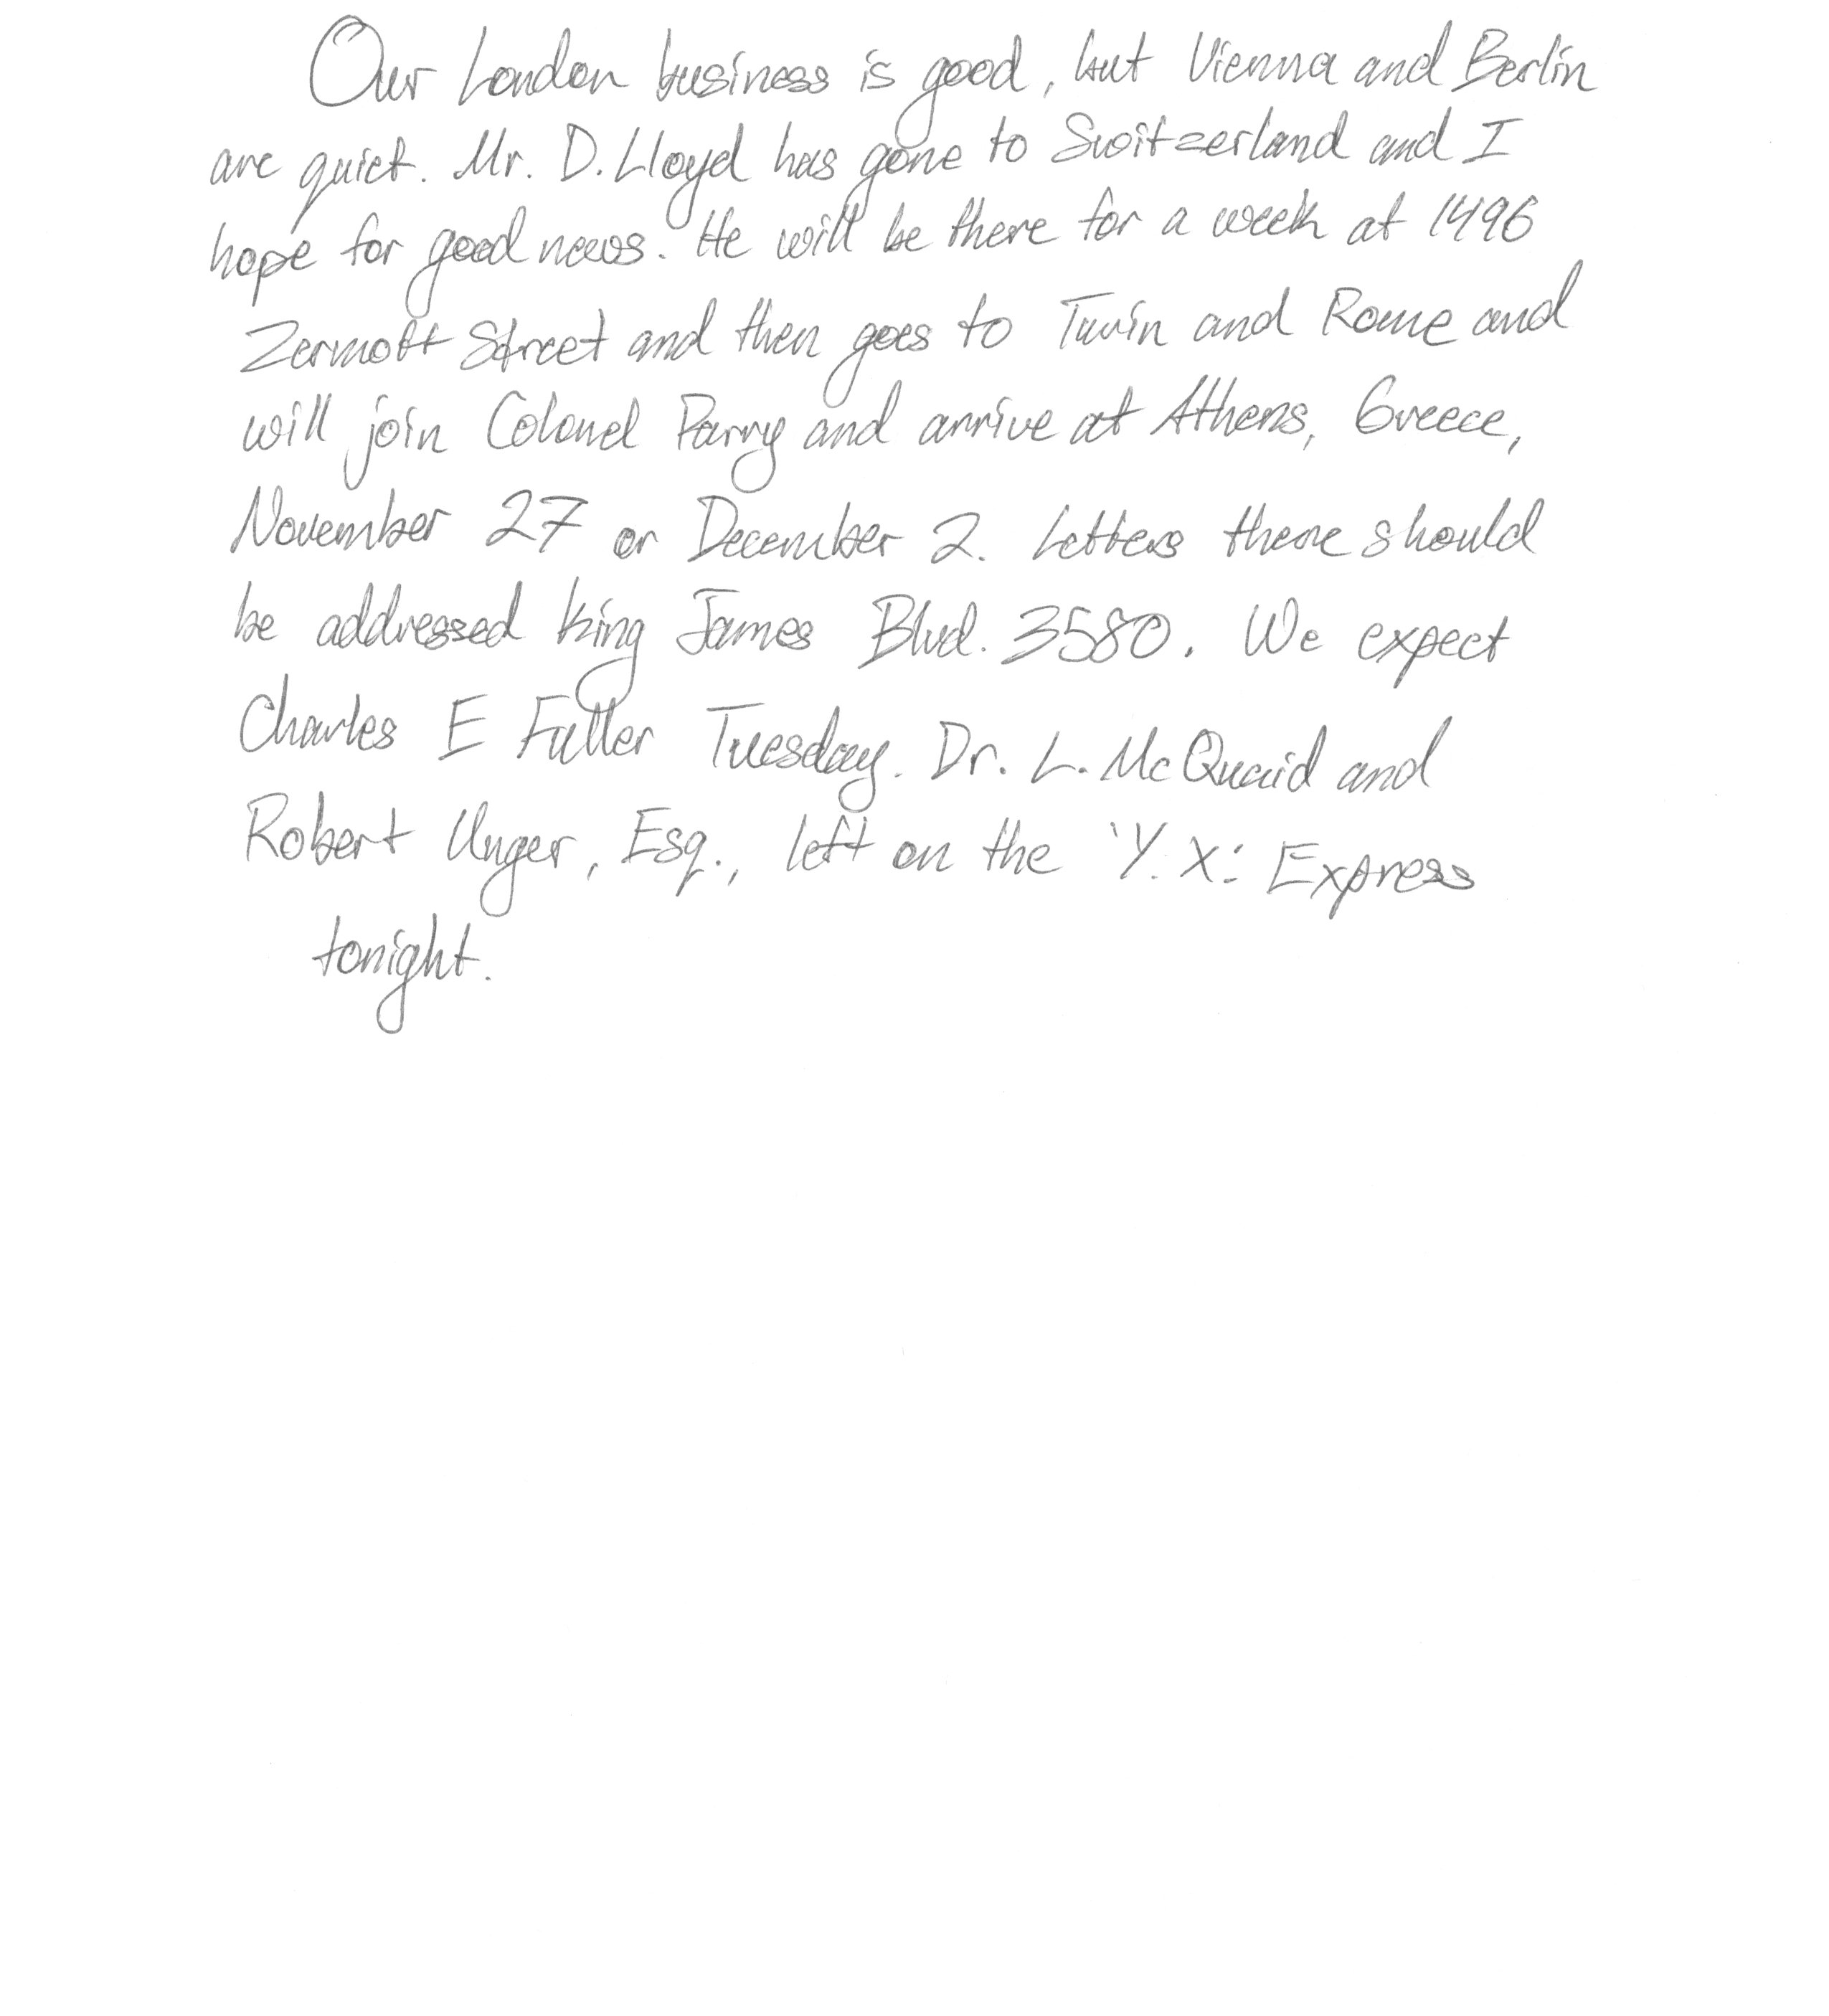 Our London business is good, but Vienna and Berlin
are quiet. Mr. D. Lloyd has gone to Switzerland and I
hope for good news. He will be there for a week at 1496
Zermott Street and then goes to Turin and Rome and
will join Colonel Parry and arrive at Athens, Greece,
November 27 or December 2. Letters there should
be addressed King James Blvd. 3580. We expect
Charles E Fuller Tuesday. Dr. L. McQuaid and
Robert Unger, Esq., left on the 'Y. X.' Express
tonight.